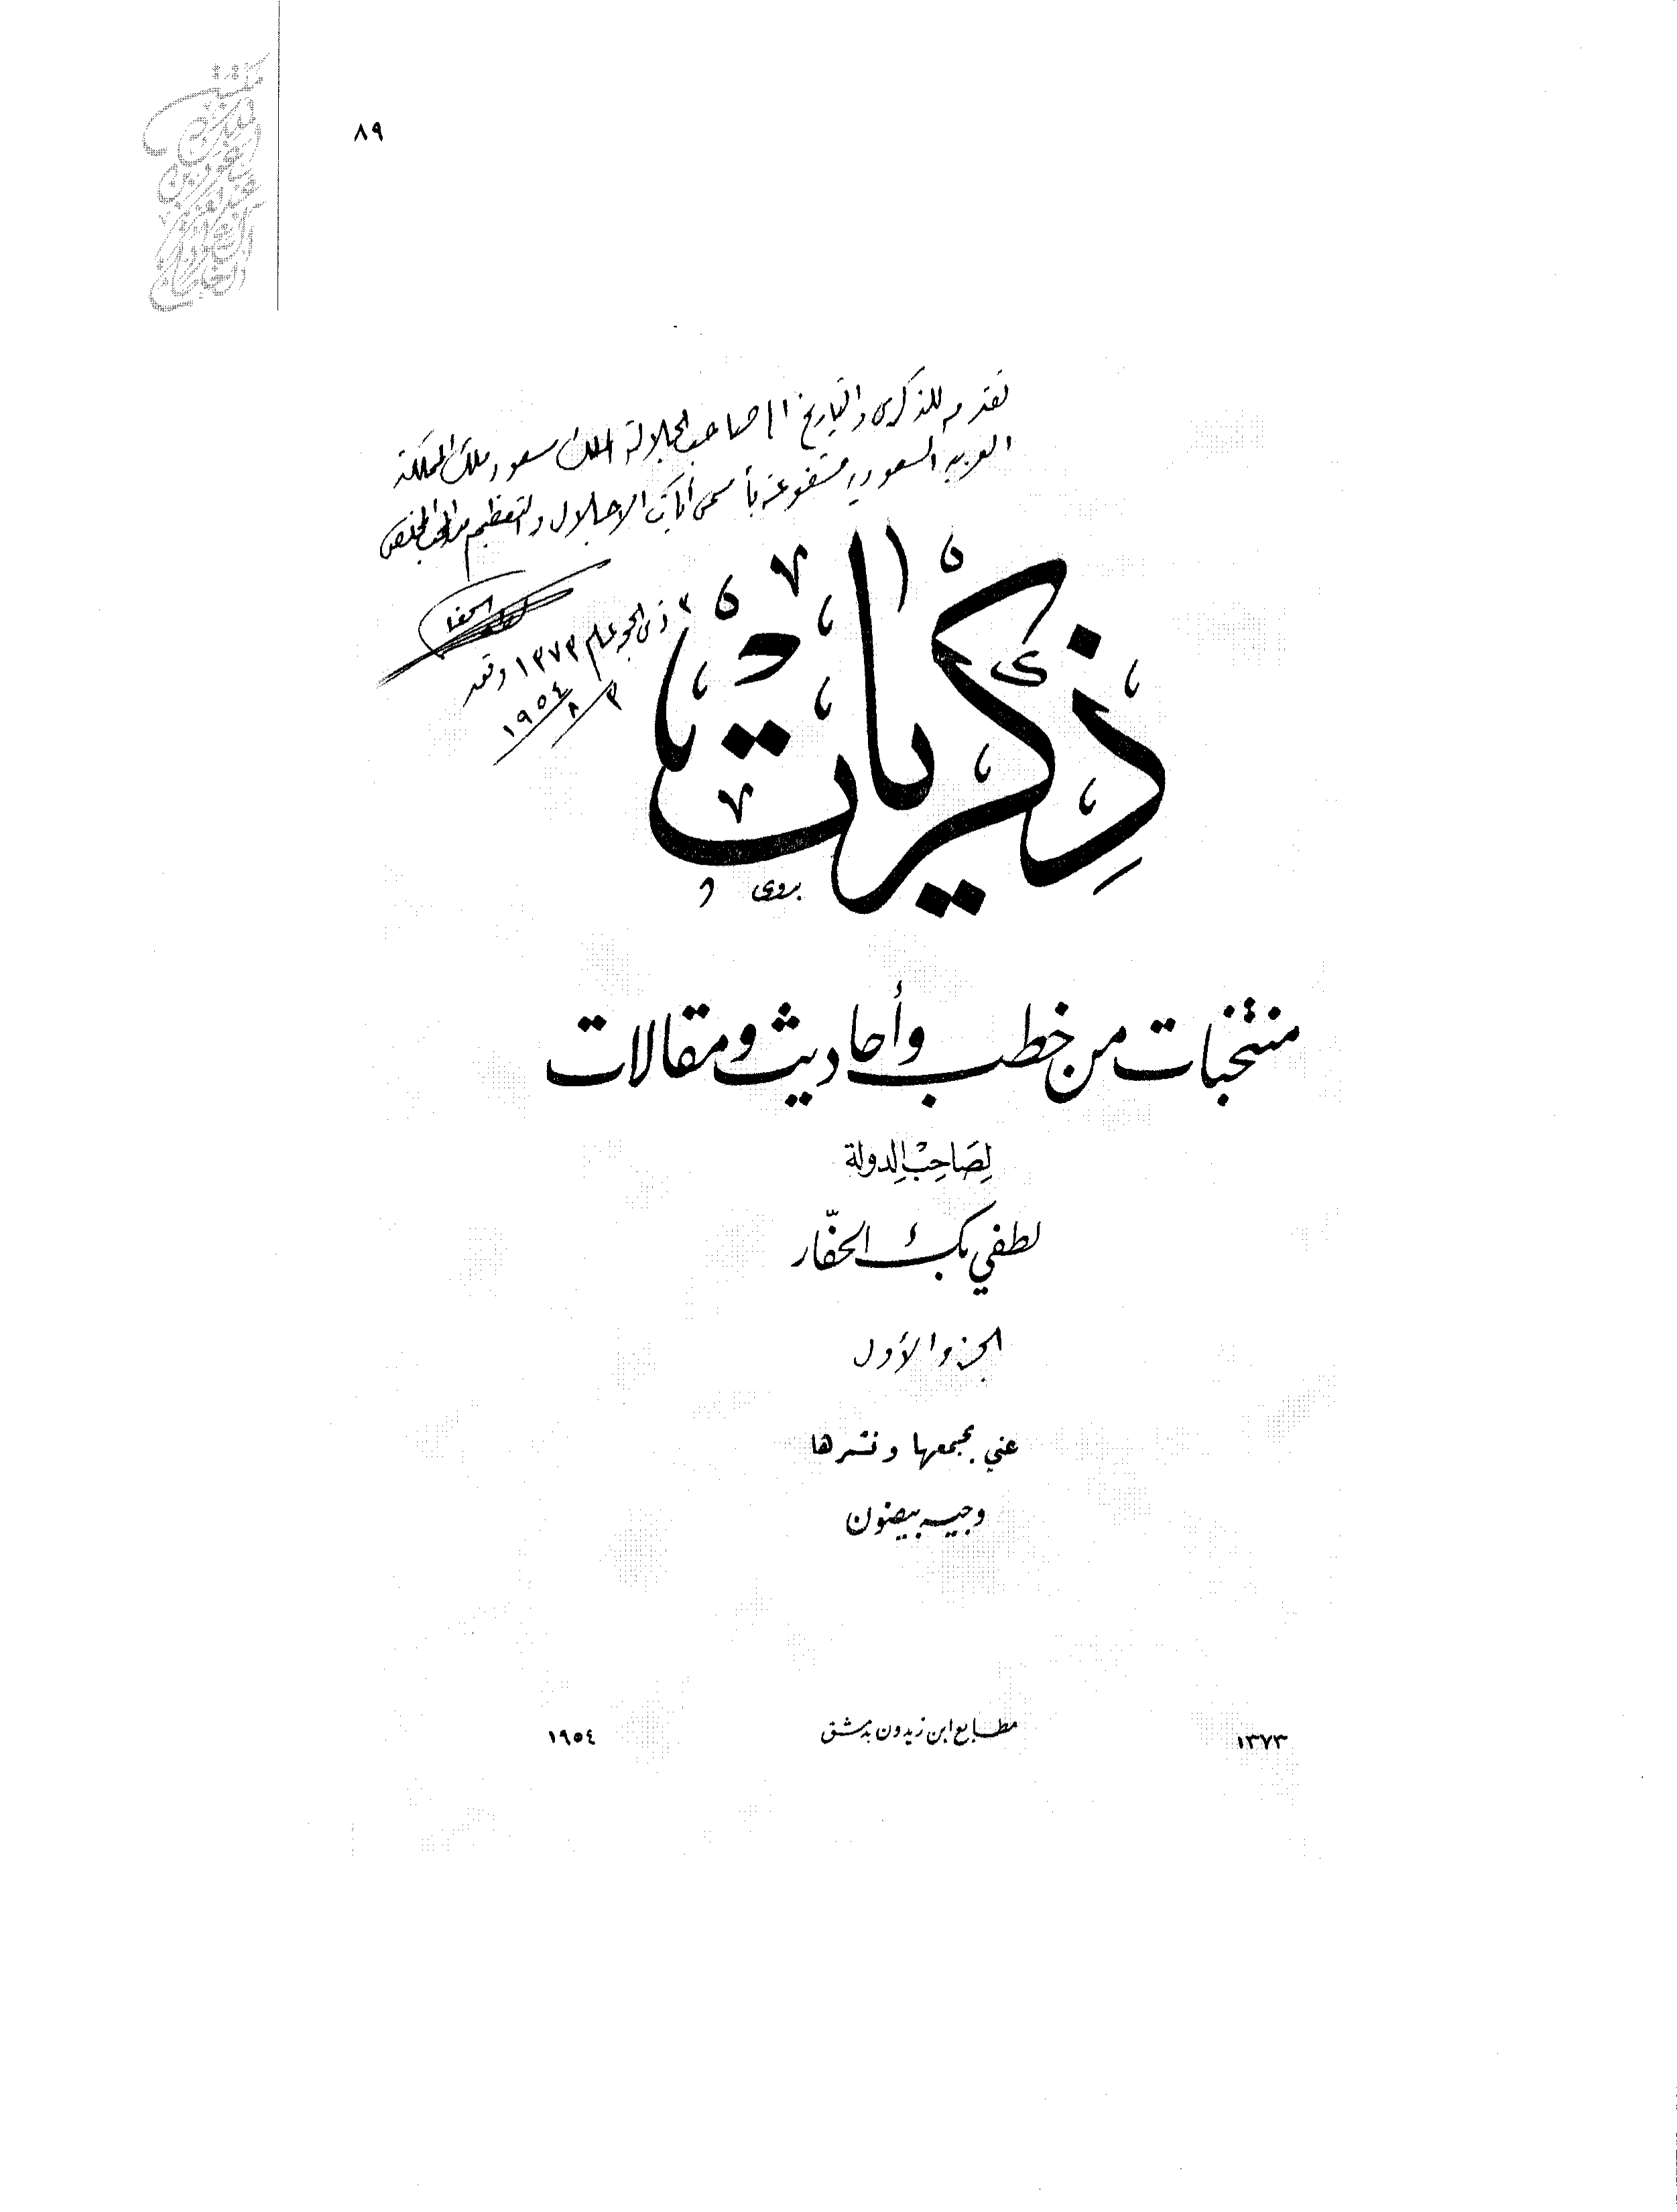 ٨٩
مكتبة الملك عبد العزيز
تقدمه للذكرى والتاريخ الى صاحب الجلالة الملك سعود ملك المملكة
العربيه السعوديه مشفوعة بأسمى آيات الاجلال والتعظيم من المخلص
الحفار
٣ ذي الحجه عام ١٣٧٣ وفي
٣/٨/١٩٥٤
ذِكْرَيَات
بدوى
منتخبات من خطب وأحاديث ومقالات
لِصَاحِبْ الدولة
لطفي بك الحفّار
الجزء الأول
عني بجمعها ونشرها
وجيه بيضون
١٣٧٣ مطابع ابن زيدون بدمشق ١٩٥٤